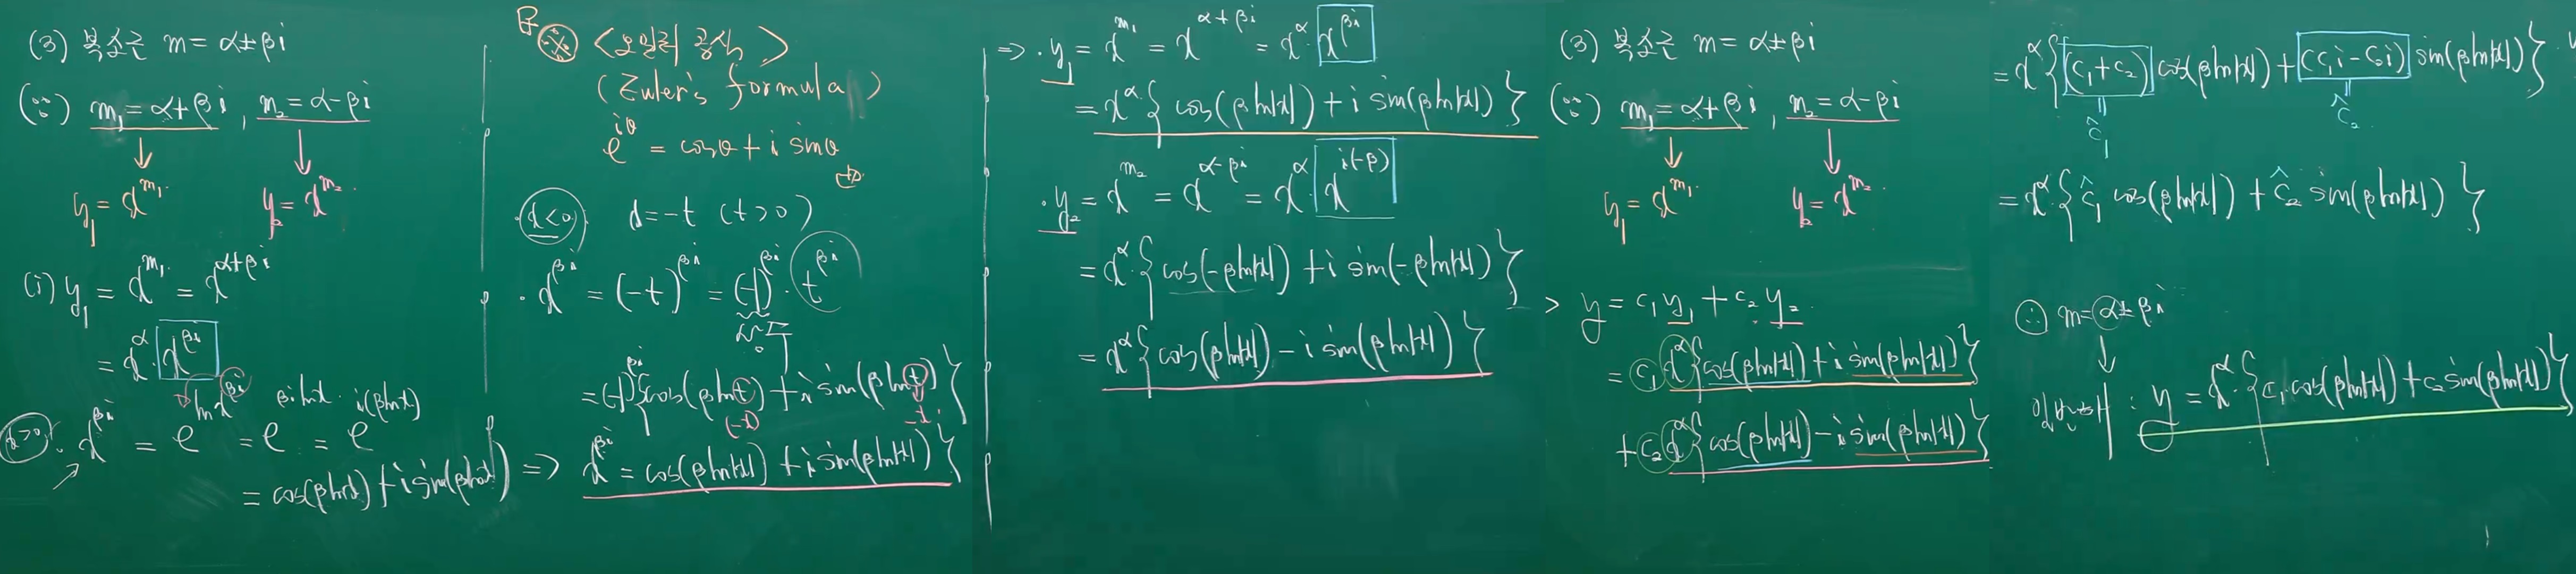 (3) 복소근 m = α±βi
(∵) m₁ = α+βi , m₂ = α-βi
↓ ↓
y₁ = x^{m₁} y₂ = x^{m₂}
(i) y₁ = x^{m₁} = x^{α+βi}
= x^α · x^{βi}
x>0, x^{βi} = e^{ln x^{βi}} = e^{βi ln x} = e^{i(β ln x)}
= cos(β ln x) + i sin(β ln x)
※ <오일러 공식>
(Euler's formula)
e^{iθ} = cosθ + i sinθ
· x<0, x = -t (t>0)
· x^{βi} = (-t)^{βi} = (-1)^{βi} · t^{βi}
= (-1)^{βi} {cos(β ln t) + i sin(β ln t)}
(-x) -x
⇒ x^{βi} = cos(β ln|x|) + i sin(β ln|x|) }
⇒ · y₁ = x^{m₁} = x^{α+βi} = x^α · x^{βi}
= x^α { cos(β ln|x|) + i sin(β ln|x|) }
· y₂ = x^{m₂} = x^{α-βi} = x^α · x^{i(-β)}
= x^α · { cos(-β ln|x|) + i sin(-β ln|x|) }
= x^α { cos(β ln|x|) - i sin(β ln|x|) }
(3) 복소근 m = α±βi
(∵) m₁ = α+βi , m₂ = α-βi
↓ ↓
y₁ = x^{m₁} y₂ = x^{m₂}
> y = c₁y₁ + c₂y₂
= c₁ x^α { cos(β ln|x|) + i sin(β ln|x|) }
+ c₂ x^α { cos(β ln|x|) - i sin(β ln|x|) }
= x^α { (c₁+c₂) cos(β ln|x|) + (c₁i - c₂i) sin(β ln|x|) }
ĉ₁ ĉ₂
= x^α · { ĉ₁ cos(β ln|x|) + ĉ₂ sin(β ln|x|) }
∴ m = α±βi
↓
일반해 : y = x^α · { c₁ cos(β ln|x|) + c₂ sin(β ln|x|) }